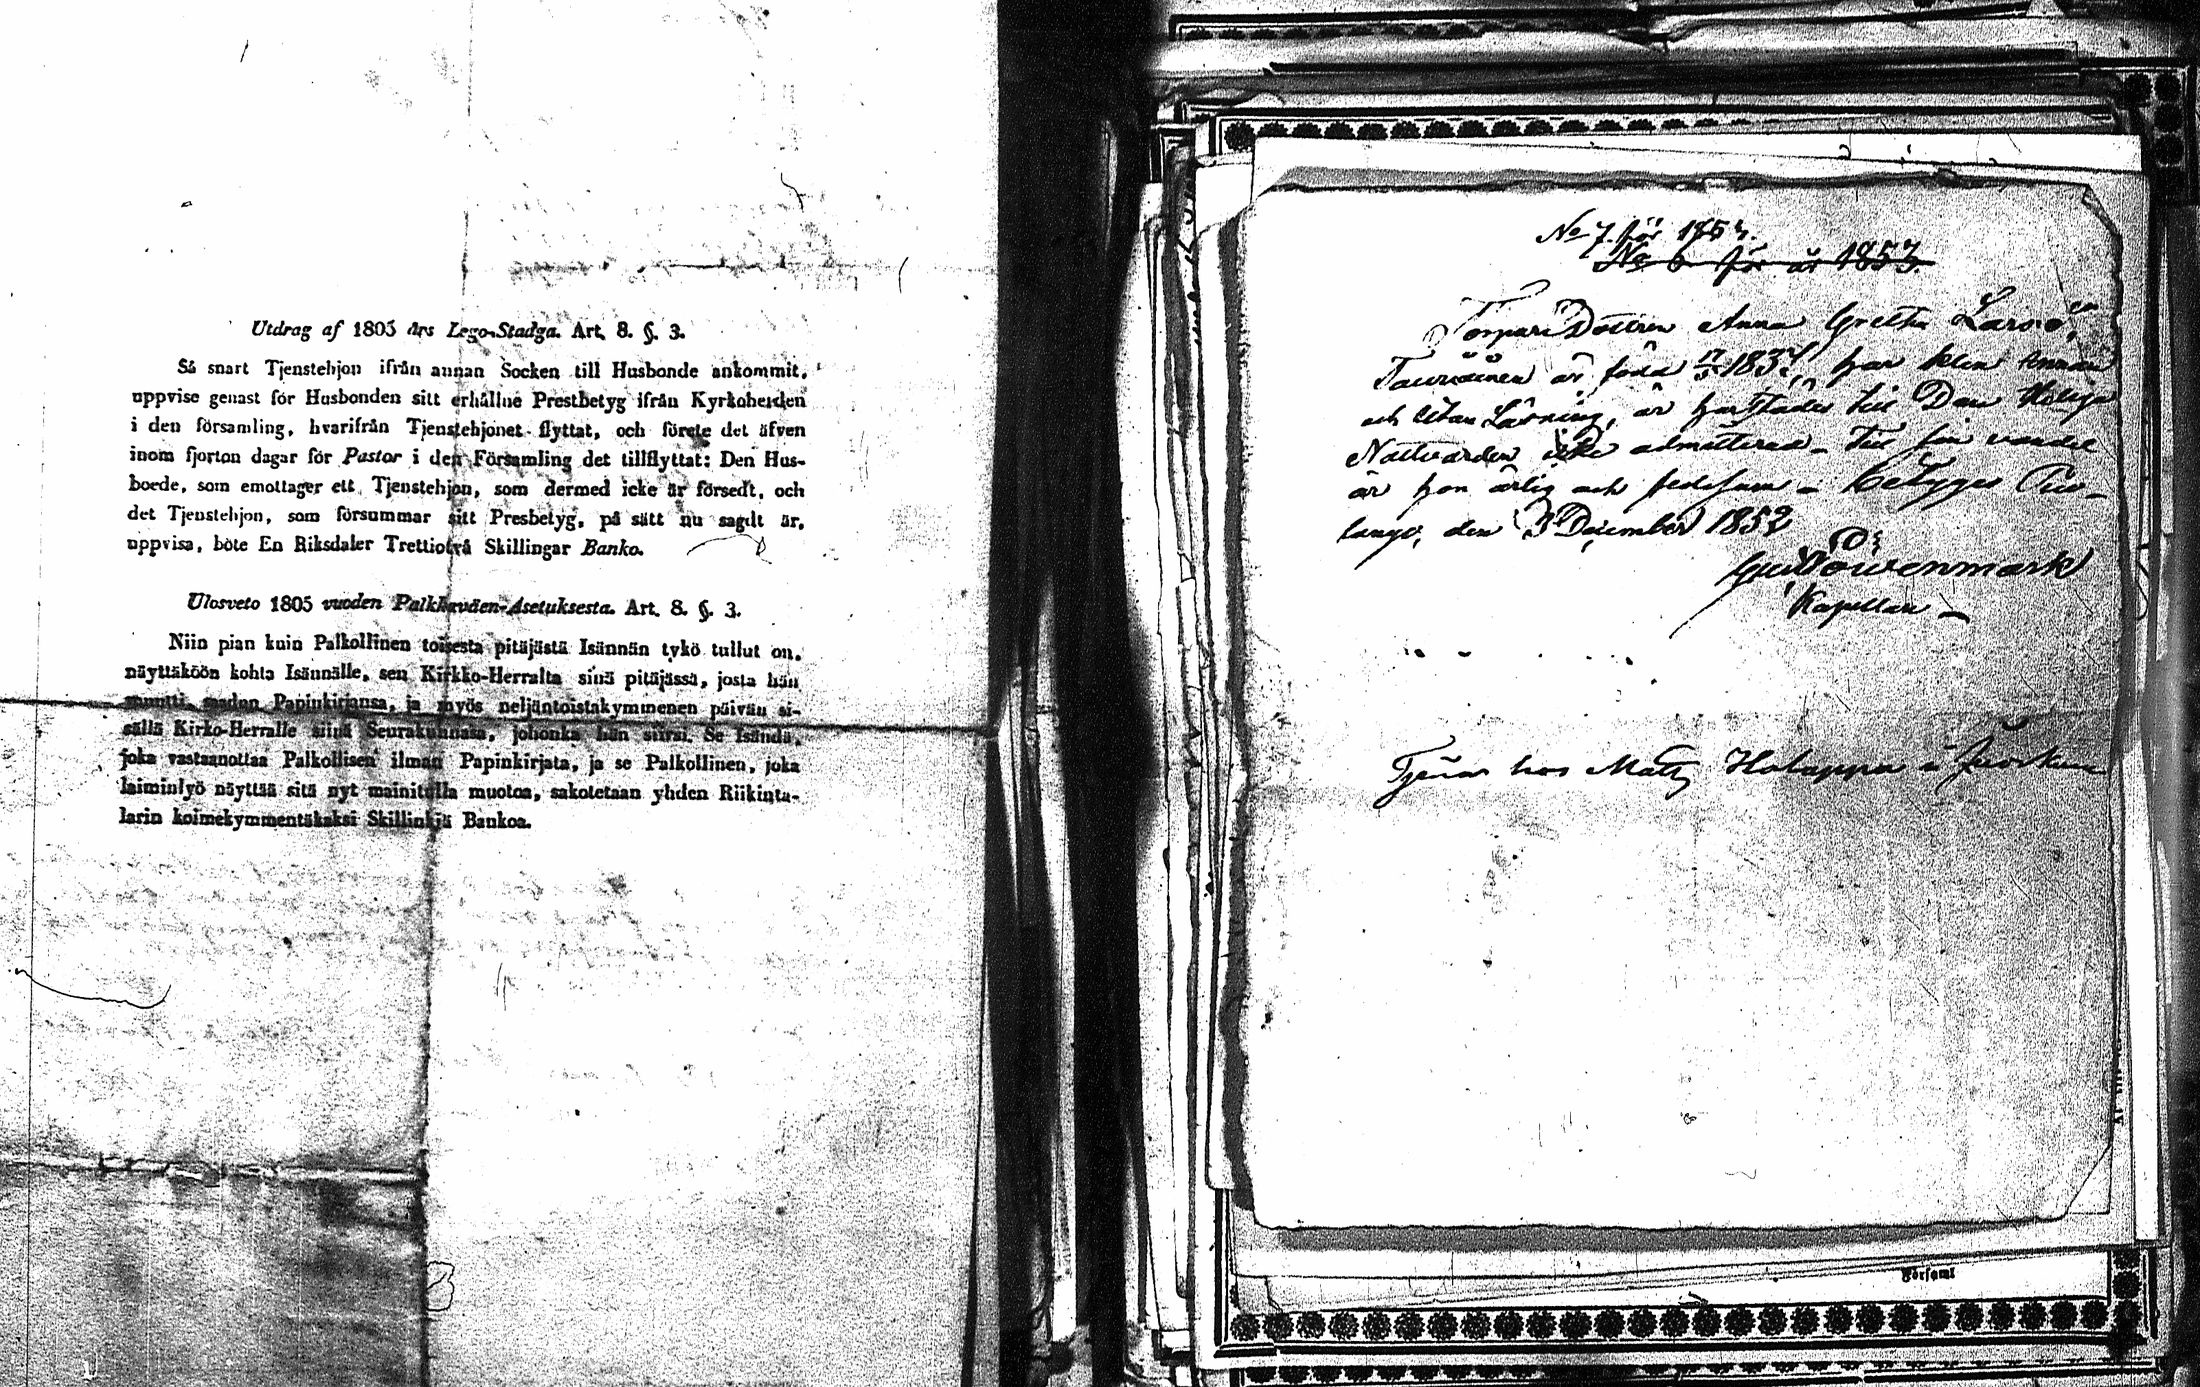 Utdrag af 1805 års Lego-Stadga. Art. 8. §. 3.
Så snart Tjenstehjon ifrån annan Socken till Husbonde ankommit,
uppvise genast för Husbonden sitt erhållne Prestbetyg ifrån Kyrkoherden
i den församling, hvarifrån Tjenstehjonet flyttat, och förete det äfven
inom fjorton dagar för Pastor i den Församling det tillflyttat: Den Hus-
boede, som emottager ett Tjenstehjon, som dermed icke är försedt, och
det Tjenstehjon, som försummar sitt Presbetyg, på sätt nu sagdt är,
uppvisa, böte En Riksdaler Trettiotvå Skillingar Banko.
Ulosveto 1805 vuoden Palkkauden-Asetuksesta. Art. 8. §. 3.
Niin pian kuin Palkollinen toisesta pitäjästä Isännän tykö tullut on,
näyttäköön kohta Isännälle, sen Kirkko-Herralta siuä pitäjässä, josta hän
muutti, saadun Papinkirjansa, ja myös neljäntoistakymmenen päivän si-
sällä Kirko-Herralle siinä Seurakunnasa, johonka hän siirsi. Se Isändä,
joka vastaanottaa Palkollisen ilman Papinkirjata, ja se Palkollinen, joka
laiminlyö näyttää sitä nyt mainitulla muotoa, sakotetaan yhden Riikinta-
larin kolmekymmentäkaksi Skillinkiä Bankoa.
No 7. för 1853.
No 6 för år 1853.
Torpare Dottren Anna Gretha Larsd:r
Tauriainen är född 17/5 1837, har klen Annan
och Utan Läsning, är hos till Den Heliga
Nattvarden icke admitterad - Till sin vandel
är hon ärlig och fredsam - Betygas Pu-
lango, den 3 December 1852
Löwenmark
Kapellan -
Tjenar hos Matts Holappa i
Församl